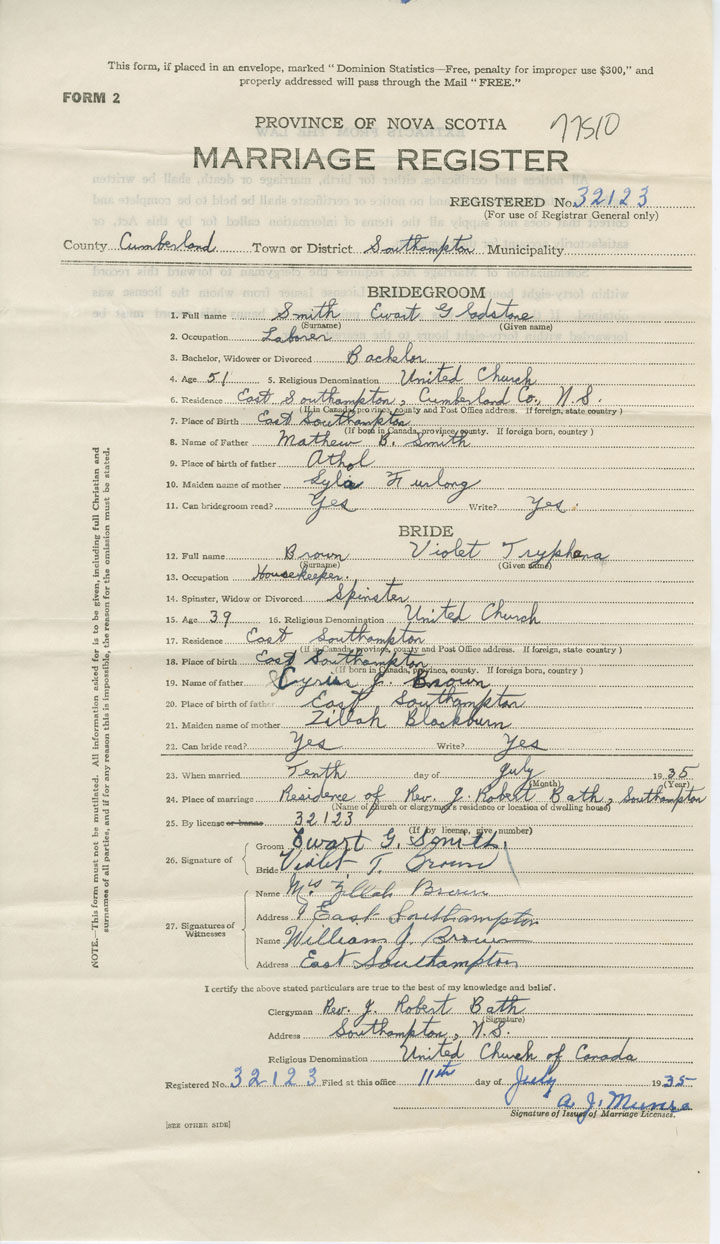 This form, if placed in an envelope, marked "Dominion Statistics—Free, penalty for improper use $300," and
properly addressed will pass through the Mail "FREE."
FORM 2
PROVINCE OF NOVA SCOTIA 77510
MARRIAGE REGISTER
REGISTERED No. 32123
(For use of Registrar General only)
County Cumberland Town or District Southampton Municipality
BRIDEGROOM
1. Full name Smith Ewart Gladstone
(Surname) (Given name)
2. Occupation Laborer
3. Bachelor, Widower or Divorced Bachelor
4. Age 51 5. Religious Denomination United Church
6. Residence East Southampton, Cumberland Co. N.S.
(If in Canada, province, county and Post Office address. If foreign, state country)
7. Place of Birth East Southampton
(If born in Canada, province, county. If foreign born, country)
8. Name of Father Mathew B. Smith
9. Place of birth of father Athol
10. Maiden name of mother Furlong
11. Can bridegroom read? Yes Write? Yes
BRIDE
12. Full name Brown Violet Tryphena
(Surname) (Given name)
13. Occupation Housekeeper.
14. Spinster, Widow or Divorced Spinster
15. Age 39 16. Religious Denomination United Church
17. Residence East Southampton
(If in Canada, province, county and Post Office address. If foreign, state country)
18. Place of birth East Southampton
(If born in Canada, province, county. If foreign born, country)
19. Name of father Cyrus J. Brown
20. Place of birth of father East Southampton
21. Maiden name of mother Zillah Blackburn
22. Can bride read? Yes Write? Yes
23. When married Tenth day of July 1935
(Month) (Year)
24. Place of marriage Residence of Rev. J. Robert Bath, Southampton
(Name of church or clergyman's residence or location of dwelling house)
25. By license or banns 32123
(If by license, give number)
26. Signature of
Groom Ewart G. Smith
Bride Violet T. Brown
27. Signatures of Witnesses
Name Mrs Zillah Brown
Address East Southampton
Name William J. Brown
Address East Southampton
I certify the above stated particulars are true to the best of my knowledge and belief.
Clergyman Rev. J. Robert Bath
(Signature)
Address Southampton, N.S.
Religious Denomination United Church of Canada
Registered No. 32123 Filed at this office 11th day of July 1935
A. J. Munro
Signature of Issuer of Marriage Licenses.
[SEE OTHER SIDE]
NOTE.—This form must not be mutilated. All information asked for is to be given, including full Christian and
surnames of all parties, and if for any reason this is impossible, the reason for the omission must be stated.